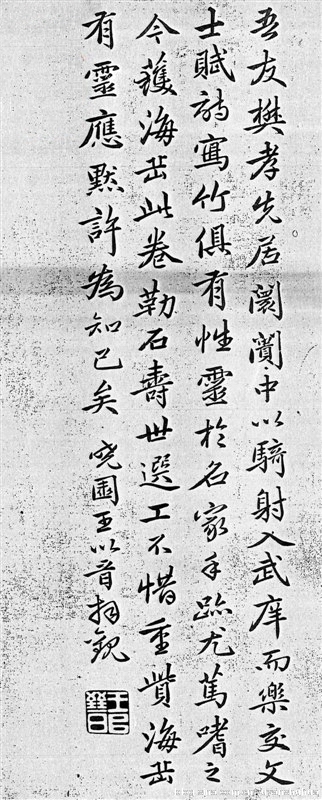 吾友樊孝先居闤闠中以騎射入武庠而樂交文
士賦詩寫竹俱有性靈於名家手跡尤篤嗜之
今獲海岳此卷勒石壽世選工不惜重貲海岳
有靈應默許為知己矣 晓園王以晉拜觀